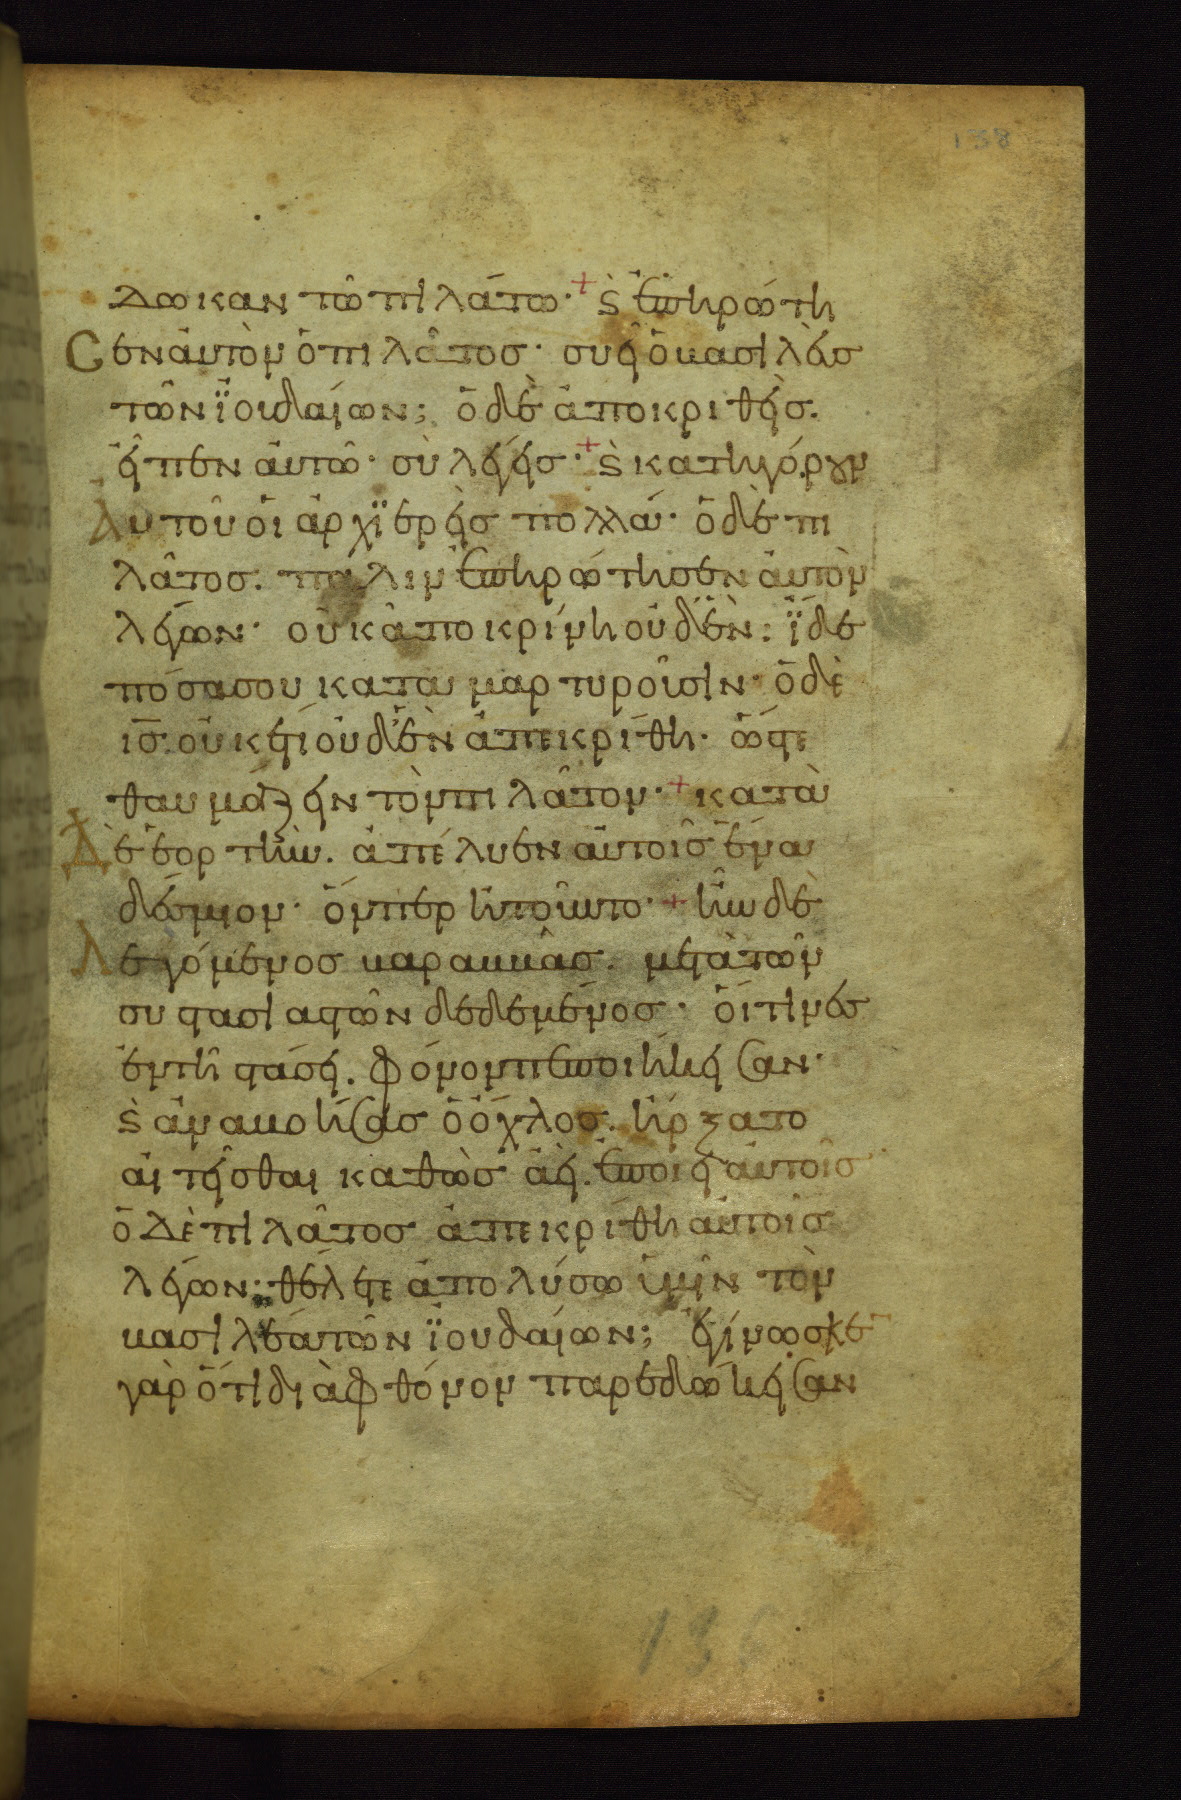 138
δωκαν τῶ πιλάτω· + ϗ̀ ἐπηρώτη
Cεν ἀυτὸν ὁ πιλᾶτοσ· συ εἶ ὁ βασιλὲυσ
τῶν ϊουδαίων; ὁ δὲ ἀποκριθεὶσ.
εἶπεν ἀυτῶ· σὺ λέγεισ· + ϗ̀ κατηγόρουν
Αυτοῦ ὁι ἀρχϊερεῖσ πολλά· ὁ δὲ πι
λᾶτοσ. πάλιν ἐπηρώτησεν ἀυτὸν
λέγων· οὐκ ἀποκρίνη οὐδὲν; ϊδε
πόσα σου καταμαρτυροῦσιν· ὁ δὲ
ι̅σ̅. οὐκ ἔτι οὐδὲν ἀπεκρίθη· ὥστε
θαυμάζειν τὸν πιλᾶτον· + κατὰ
Δὲ ἑορτὴν. ἀπέλυεν ἀυτοῖσ ἕνα
δέσμιον· ὅνπερ ἠτοῦντο· + ἦν δὲ
Λεγόμενοσ βαραββᾶσ. μετὰ τῶν
συστασιαστῶν δεδεμένοσ· ὅιτινεσ
ἐν τῆ στάσει. φόνον πεποιήκεισαν·
ϗ̀ ἀναβοήσασ ὁ ὄχλοσ. ἤρξατο
αἰτεῖσθαι καθὼσ ἀεὶ. ἐποίει ἀυτοῖσ
ὁ δὲ πιλᾶτοσ ἀπεκρίθη ἀυτοῖσ
λέγων· θέλετε ἀπολύσω ὑμῖν τὸν
βασιλέα τῶν ϊουδαίων; ἐγίνωσκε
γὰρ ὅτι διὰ φθόνον παρεδώκεισαν